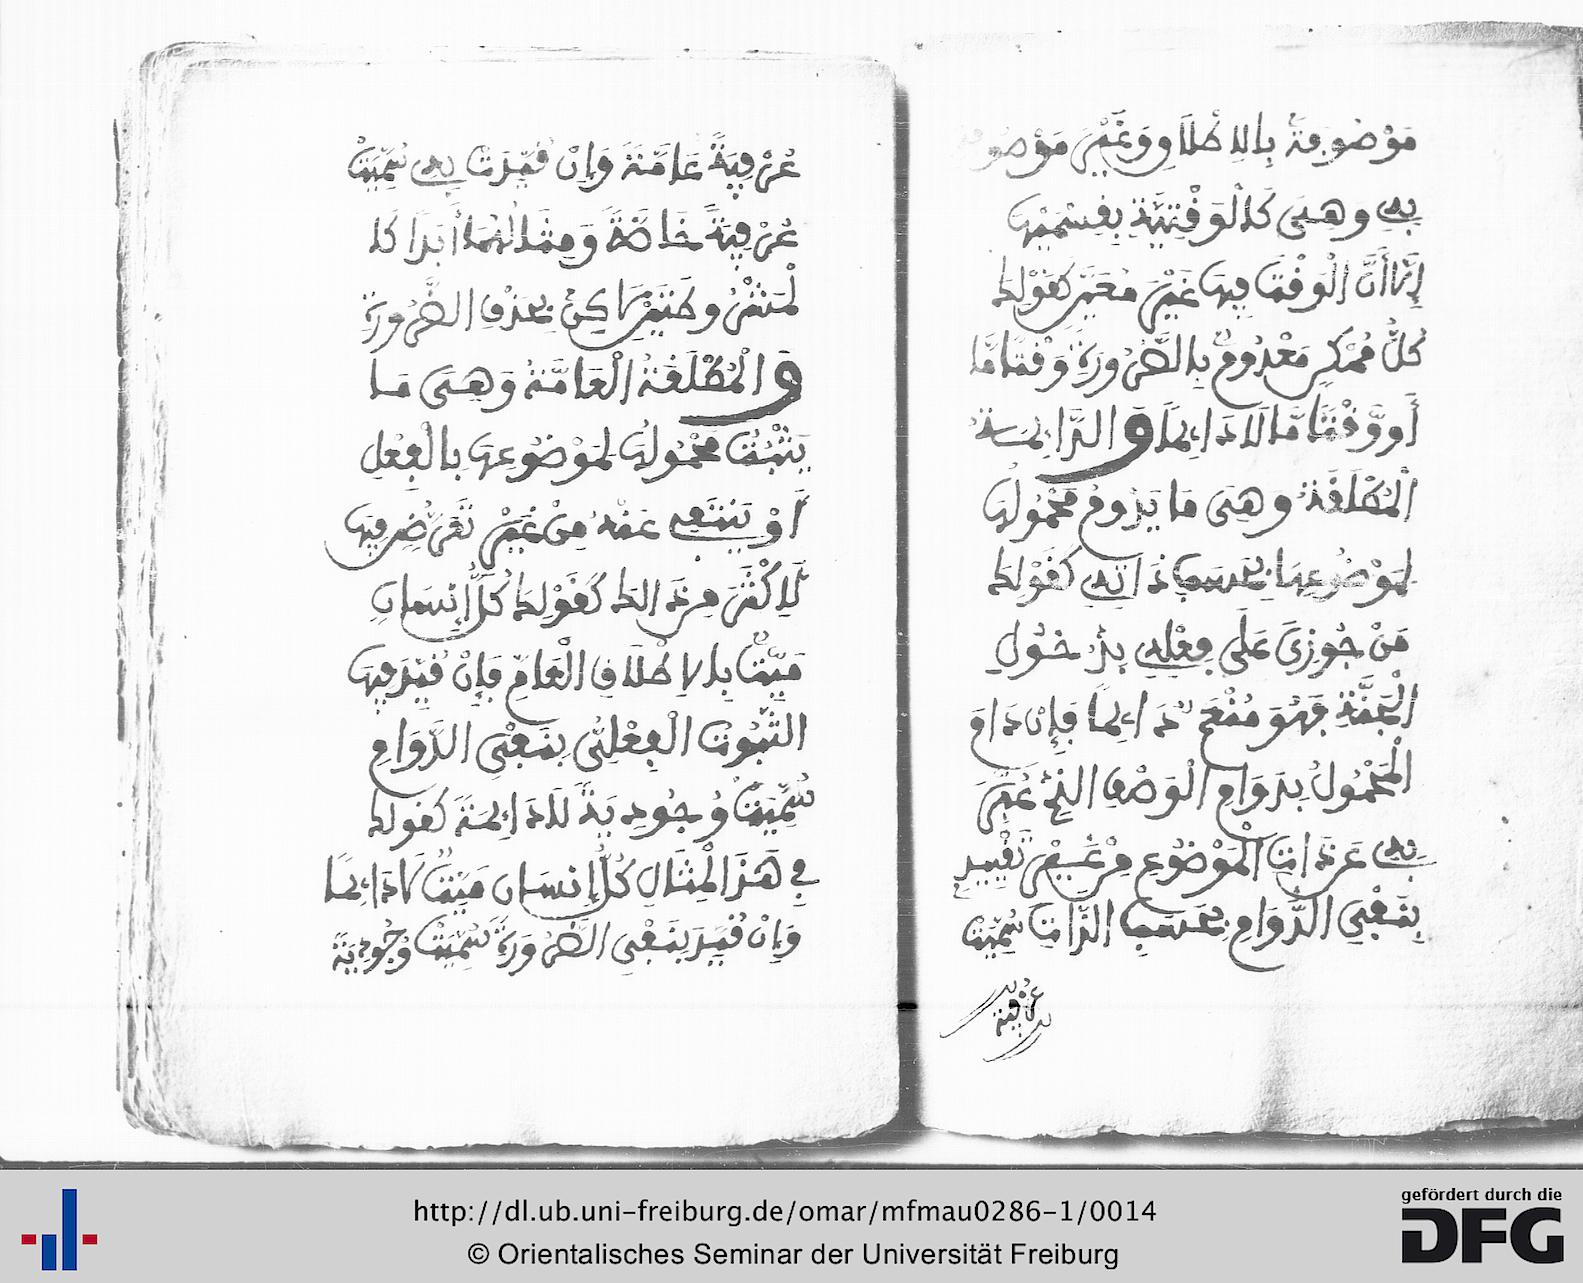 مَوْصُوفَةٌ بِالِاطْلَاقِ وَغَيْرَ مَوْصُو
بِهِ وَهِيَ كَالْوَقْتِيَّةِ بِقِسْمَيْهَا
إِلَّا أَنَّ الْوَقْتَ فِيهَا غَيْرَ مُعَيَّنٍ كَقَوْلِكَ
كُلُّ مُمْكِنٍ مَعْدُومٌ بِالضَّرُورَةِ وَقْتًا مَّا
أَوْ وَقْتًا مَّا لَا دَائِمًا وَ الدَّائِمَةُ
الْمُطْلَقَةُ وَهِيَ مَا يَدُومُ مَحْمُولُهَا
لِمَوْضُوعِهَا بِحَسَبِ ذَاتِهِ كَقَوْلِكَ
مَنْ جُوزِيَ عَلَى فِعْلِهِ بِدُخُولِ
الْجَنَّةِ فَهُوَ مُنَعَّمٌ دَائِمًا فَإِنْ دَامَ
الْمَحْمُولُ بِدَوَامِ الْوَصْفِ الَّذِي عُبِّرَ
بِهِ عَنْ ذَاتِ الْمَوْضُوعِ مِنْ غَيْرِ تَقْيِيدٍ
بِنَفْيِ الدَّوَامِ بِحَسَبِ الذَّاتِ سُمِّيَتْ
عُرْفِيَّة
عُرْفِيَّةً عَامَّةً وَإِنْ قُيِّدَتْ بِهِ سُمِّيَتْ
عُرْفِيَّةً خَاصَّةً وَمِثَالُهُمَا أَبَدًا كَا
لْمَشْرُوطَتَيْنِ لَكِنْ بِحَذْفِ الضَّرُورَةِ
وَ الْمُطْلَقَةُ الْعَامَّةُ وَهِيَ مَا
يَثْبُتُ مَحْمُولُهَا لِمَوْضُوعِهَا بِالْفِعْلِ
أَوْ يَنْتَفِي عَنْهُ مِنْ غَيْرِ تَعَرُّضٍ فِيهَا
لِأَكْثَرَ مِنْ ذَالِكَ كَقَوْلِكَ كُلُّ إِنْسَانٍ
مَيِّتٌ بِالِاطْلَاقِ الْعَامِّ فَإِنْ قُيِّدَ فِيهَا
الثُّبُوتُ الْفِعْلِيُّ بِنَفْيِ الدَّوَامِ
سُمِّيَتْ وُجُودِيَّةً لَادَائِمَةً كَقَوْلِكَ
فِي هَذَا الْمِثَالِ كُلُّ إِنْسَانٍ مَيِّتٌ لَا دَائِمًا
وَإِنْ قُيِّدَ بِنَفْيِ الضَّرُورَةِ سُمِّيَتْ وُجُودِيَّةً
http://dl.ub.uni-freiburg.de/omar/mfmau0286-1/0014
© Orientalisches Seminar der Universität Freiburg
gefördert durch die
DFG